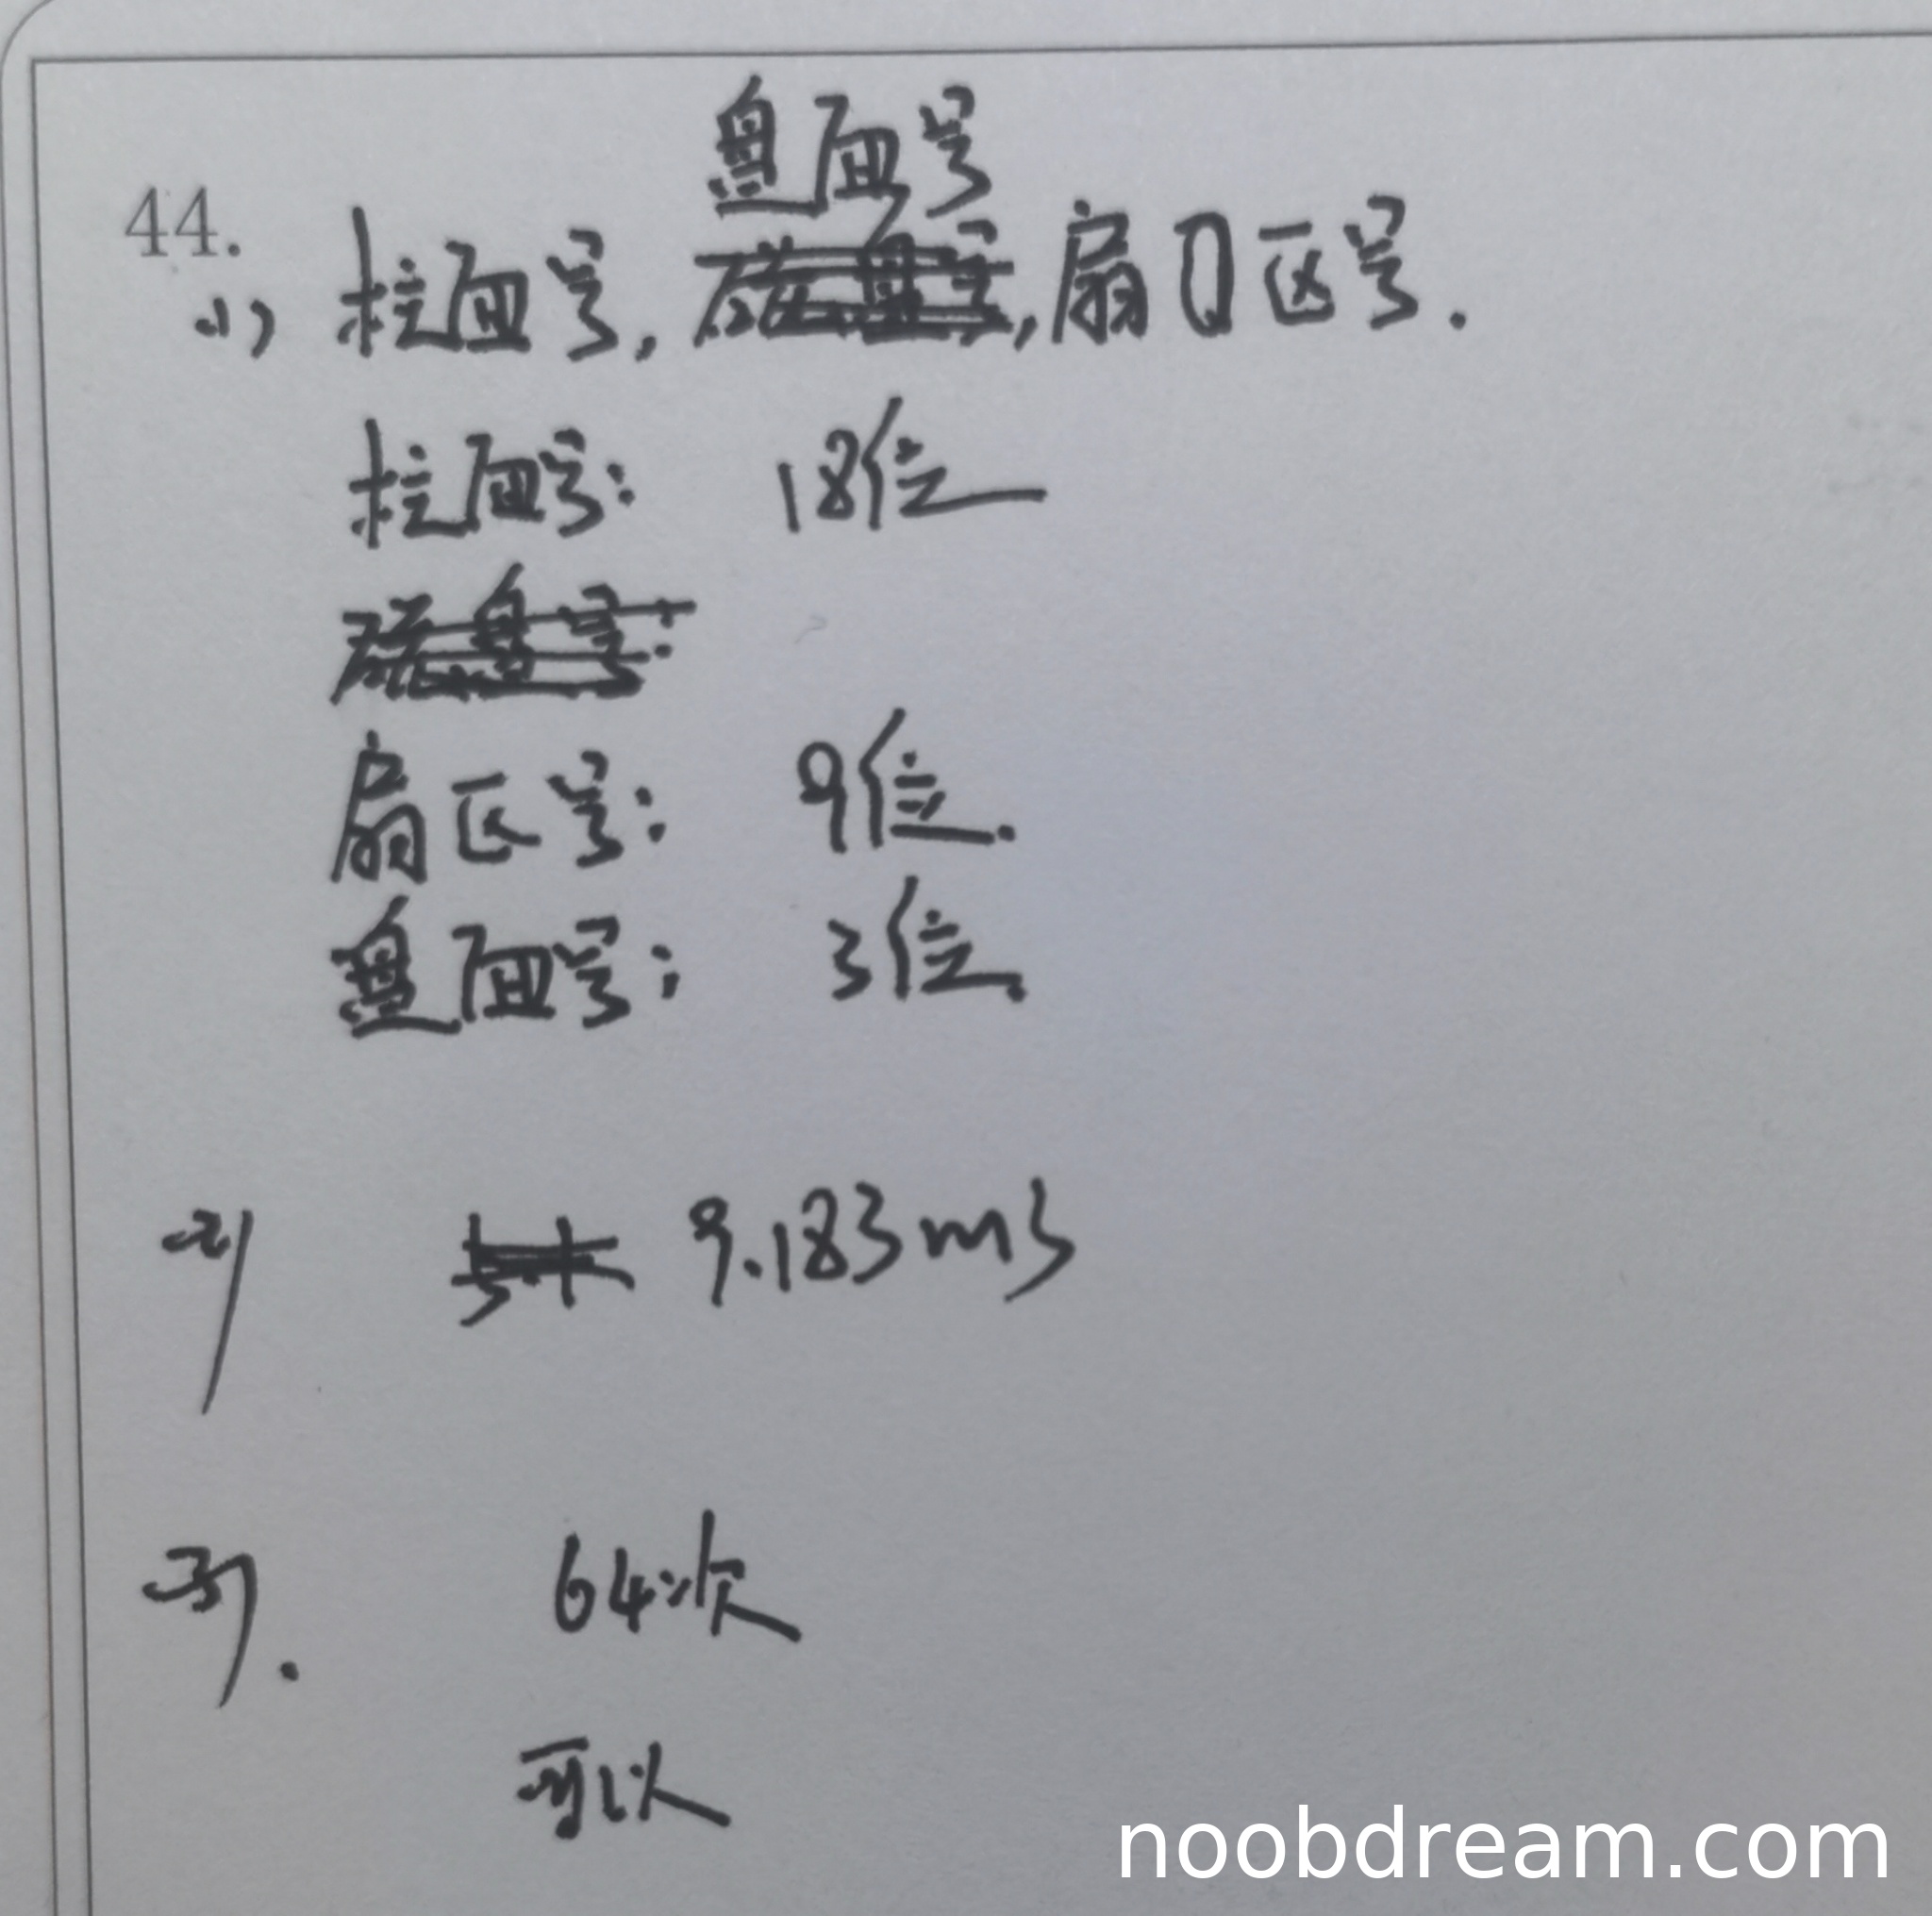 44.
(1) 柱面号, 盘面号, 扇区号.
柱面号: 18位
扇区号: 9位.
盘面号: 3位.
(2) 9.183ms
(3). 64次
可以
noobdream.com